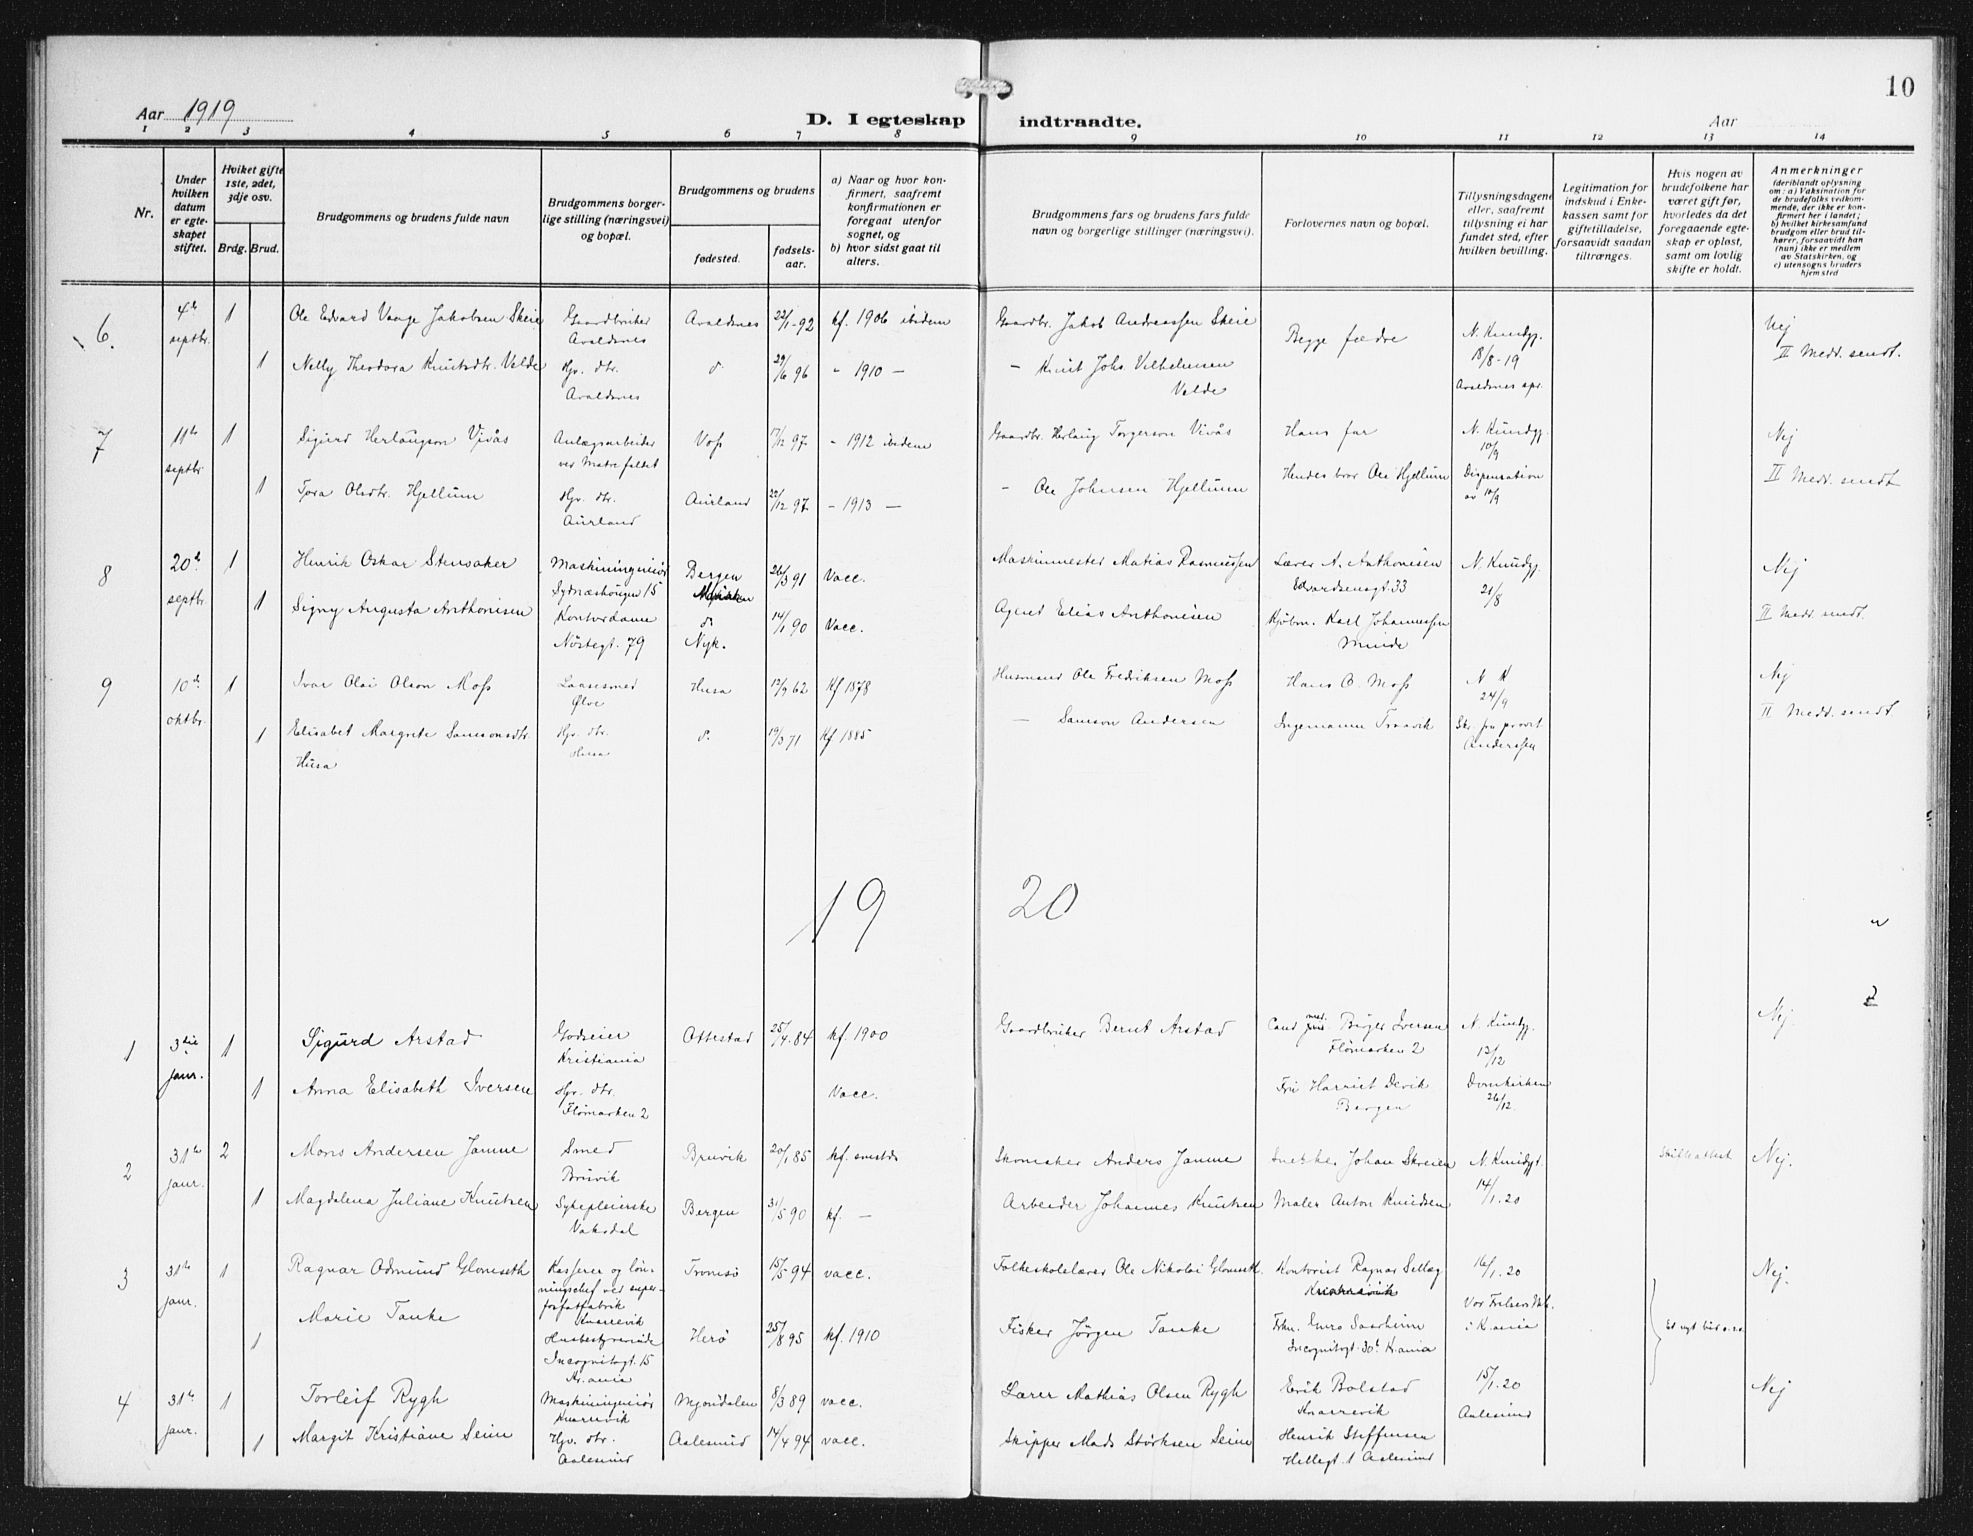 10
Aar 1919
D. I egteskap indtraadte.
Aar
1 2 3 4 5 6 7 8 9 10 11 12 13 14
Nr.
Under hvilken datum er egteskapet stiftet.
Hviket gifte 1ste, 2det, 3dje osv.
Brdg. Brud.
Brudgommens og brudens fulde navn
Brudgommens borgerlige stilling (næringsvei) og bopæl.
Brudgommens og brudens
fødested.
fødselsaar.
a) Naar og hvor konfirmert, saafremt konfirmationen er foregaat utenfor sognet, og
b) hvor sidst gaat til alters.
Brudgommens fars og brudens fars fulde navn og borgerlige stillinger (næringsvei).
Forlovernes navn og bopæl.
Tillysningsdagene eller, saafremt tillysning ei har fundet sted, efter hvilken bevilling.
Legitimation for indskud i Enkekassen samt for giftetilladelse, forsaavidt saadan tiltrænges.
Hvis nogen av brudefolkene har været gift før, hvorledes da det foregaaende egteskap er opløst, samt om lovlig skifte er holdt.
Anmerkninger
(deriblandt oplysning om: a) Vaksination for de brudefolks vedkommende, der ikke er konfirmert her i landet; b) hvilket kirkesamfund brudgom eller brud tilhører, forsaavidt han (hun) ikke er medlem av Statskirken, og c) utensogns bruders hjemsted
6. 4de septbr. 1 Ole Edvard Vaage Jakobsen Skeie Gaardbruker Avaldsnes Avaldsnes 22/1-92 kf. 1906 ibidem Gaardbr. Jakob Andreassen Skeie Begge fædre N. Kundgj. 18/8-19 Nej
1 Nelly Theodora Knutsdtr. Velde Hjv. dtr. Avaldsnes d. 29/6 96 " 1910 — — Knut Johs. Vilhelmsen Velde Avaldsnes spr. II Medd. sendt.
7 11te septbr 1 Sigurd Herlaugson Vivås Anlægsarbeider ved Matrefaldet Voss 17/12 97 - 1912 ibidem Gaardbr. Herlaug Torgerson Vivås Hans far N. Kundgj. 10/9 Nej
1 Tora Olsdtr. Hjellum Hjv. dtr. Aurland Aurland 22/12 97 - 1913 — - Ole Johnsen Hjellum Hendes bror Ole Hjellum Dispensation av 10/9 II Medd. sendt
8 20de septbr 1 Henrik Oskar Stensaker Maskiningeniør Sydnæshaugen 15 Bergen 26/3 91 Vacc. Maskinmester Matias Rasmussen Lærer A. Anthonisen Edvardsensgt. 33 N. Kundgj. 21/8 Nej
1 Signy Augusta Anthonisen Kontordame Nøstegt. 79 d. Nyk. 14/1 90 Vacc. Agent Elias Anthonisen Kjøbm. Karl Johannessen Minde II Medd. sendt.
9 10de oktbr. 1 Ivar Olai Olson Moss Laasesmed Ølve Husa 12/9 62 Kf 1878 Husmand Ole Fredriksen Moss Hans O. Moss N K 24/9 Nej
1 Elisabet Margrete Samsonsdtr. Husa Hjv. dtr. Husa d. 19/3 71 Kf 1885 — Samson Andersen Ingemann Traavik Skr. fra provst Anderssen II Medd. sendt
19 20
1 3die janr. 1 Sigurd Arstad Godseier Kristiania Ottestad 25/4.84 kf. 1900 Gaardbruker Bernt Arstad Cand med. Birger Iversen Flømarken 2 N. Kundgj. 13/12 Nej.
1 Anna Elisabeth Iversen Hjv. dtr. Flømarken 2 Vacc. Fru Harriet Devik Bergen Domkirken 26/12.
2 31te janr. 2 Mons Andersen Jamne Smed Bruvik Bruvik 20/1 85 kf. Skomaker Anders Jamne Snekker Johan Skreien N. Kundgj. 14/1.20 Skilteattest Nej.
1 Magdalena Juliane Knutsen Sykepleierske Vaksdal Bergen 31/5 90 kf. — Arbeider Johannes Knutsen Maler Anton Knudsen
3 31te janr. 1 Ragnar Odmund Glomseth Kasserer og lønningschef ved superfosfatfabrik Knarrevik Tromsø 15/5 94 vacc. Folkeskolelærer Ole Nikolai Glomseth Kontorist Ragnar Sellæg Knarrevik 16/1.20 Nej.
1 Marie Tanke Husbestyrerinde Incognitogt. 15 Kr.ania Herø 25/8 95 kf. 1910 Fisker Jørgen Tanke Frkn. Guro Saarheim Incognitogt. 30b Kr.ania Vor Frelsers Kk. i Kr.ania
4 31te janr. 1 Torleif Rygh Maskiningeniør Knarrevik Mjøndalen 8/3 89 vacc. Lærer Mathias Olsen Rygh Eirik Bolstad Knarrevik 15/1.20 Aalesund Nej
1 Margit Kristiane Seim Hjv. dtr. Aalesund Aalesund 14/4 94 vacc. Skipper Mads Størksen Seim Henrik Steffensen Hellegt. 1 Aalesund